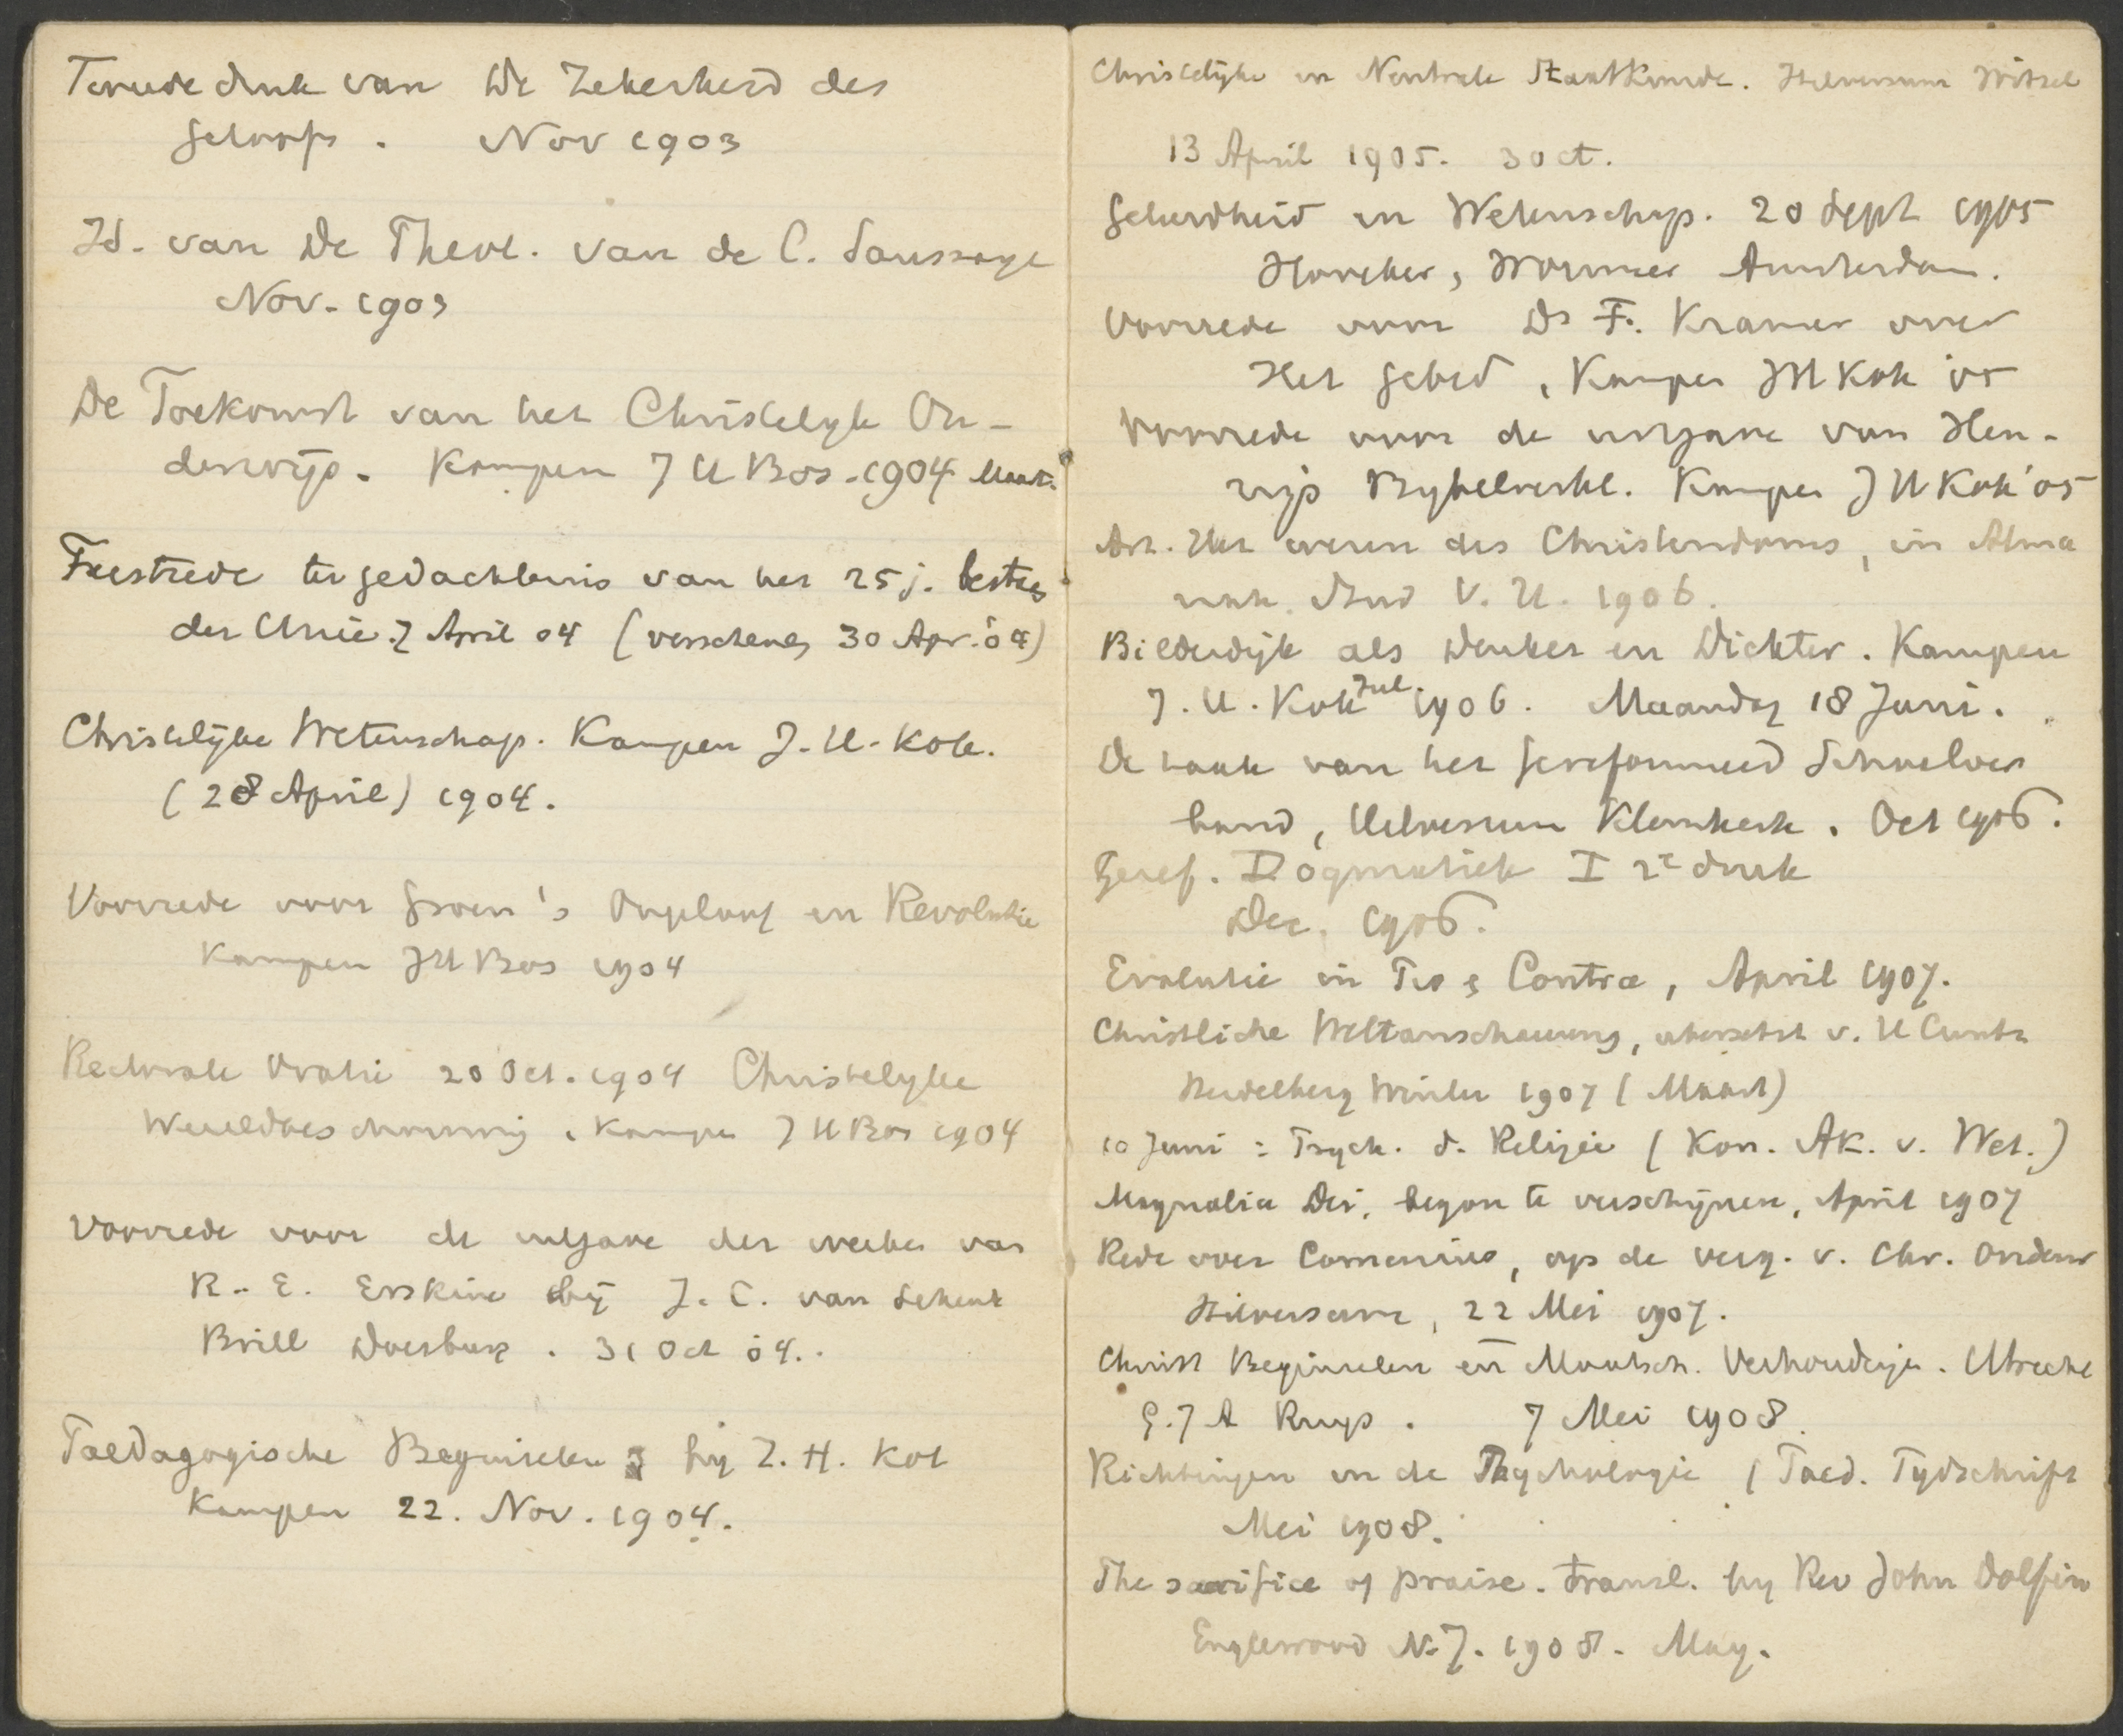 Tweede druk van De Zekerheid des
geloofs. Nov 1903
Id. van De Theol. van de C. Saussaye
Nov. 1903
De Toekomst van het Christelyk On-
derwijs. Kampen J H Bos. 1904 Maart.
Feestrede ter gedachtenis van het 25 j. bestaan
der Unie. 7 April 04 (verschenen 30 Apr. 04)
Christelijke Wetenschap. Kampen J. H. Kok.
(28 April) 1904.
Voorrede voor Groen's Ongeloof en Revolutie
Kampen J H Bos 1904
Rectorale Oratie 20 Oct. 1904 Christelyke
Wereldbeschouwing. Kampen J H Bos 1904
Voorrede voor de uitgave der werken van
R. E. Erskine bij J. C. van Schenk
Brill Doesburg. 31 Oct 04.
Paedagogische Beginselen by J. H. Kok
Kampen 22. Nov. 1904.
Christelijke en Neutrale Staatkunde. Hilversum Witzel
13 April 1905. 30 ct.
Geleerdheid en Wetenschap. 20 Sept 1905
Höveker, Wormser Amsterdam.
Voorrede voor Ds F. Kramer over
Het gebed, Kampen J H Kok 05
Voorrede voor de uitgave van Hen-
rijs Bybelverkl. Kampen J H Kok '05
Art. Het wezen des Christendoms, in Alma
nak. Stud V. U. 1906.
Bilderdijk als Denker en Dichter. Kampen
J. H. Kok Jul 1906. Maandag 18 Juni.
De taak van het Gereformeerd Schoolver
band, Hilversum Klemkerk. Oct 1906.
Geref. Dogmatiek I 2e druk
Dec. 1906.
Evolutie in Pro & Contra, April 1907.
Christliche Weltanschauung, übersetzt v. H Cuntz
Heidelberg Winter 1907 (Maart)
10 Juni : Psych. d. Religie (Kon. Ak. v. Wet.)
Magnalia Dei, begon te verschijnen, April 1907
Rede over Comenius, op de verg. v. Chr. Onderw
Hilversum, 22 Mei 1907.
Christ Beginselen en Maatsch. Verhoudingen. Utrecht
G. J A Ruys. 7 Mei 1908.
Richtingen in de Psychologie (Paed. Tydschrift
Mei 1908.
The sacrifice of praise. Transl. by Rev John Dolfin
Englewood N. J. 1908. May.